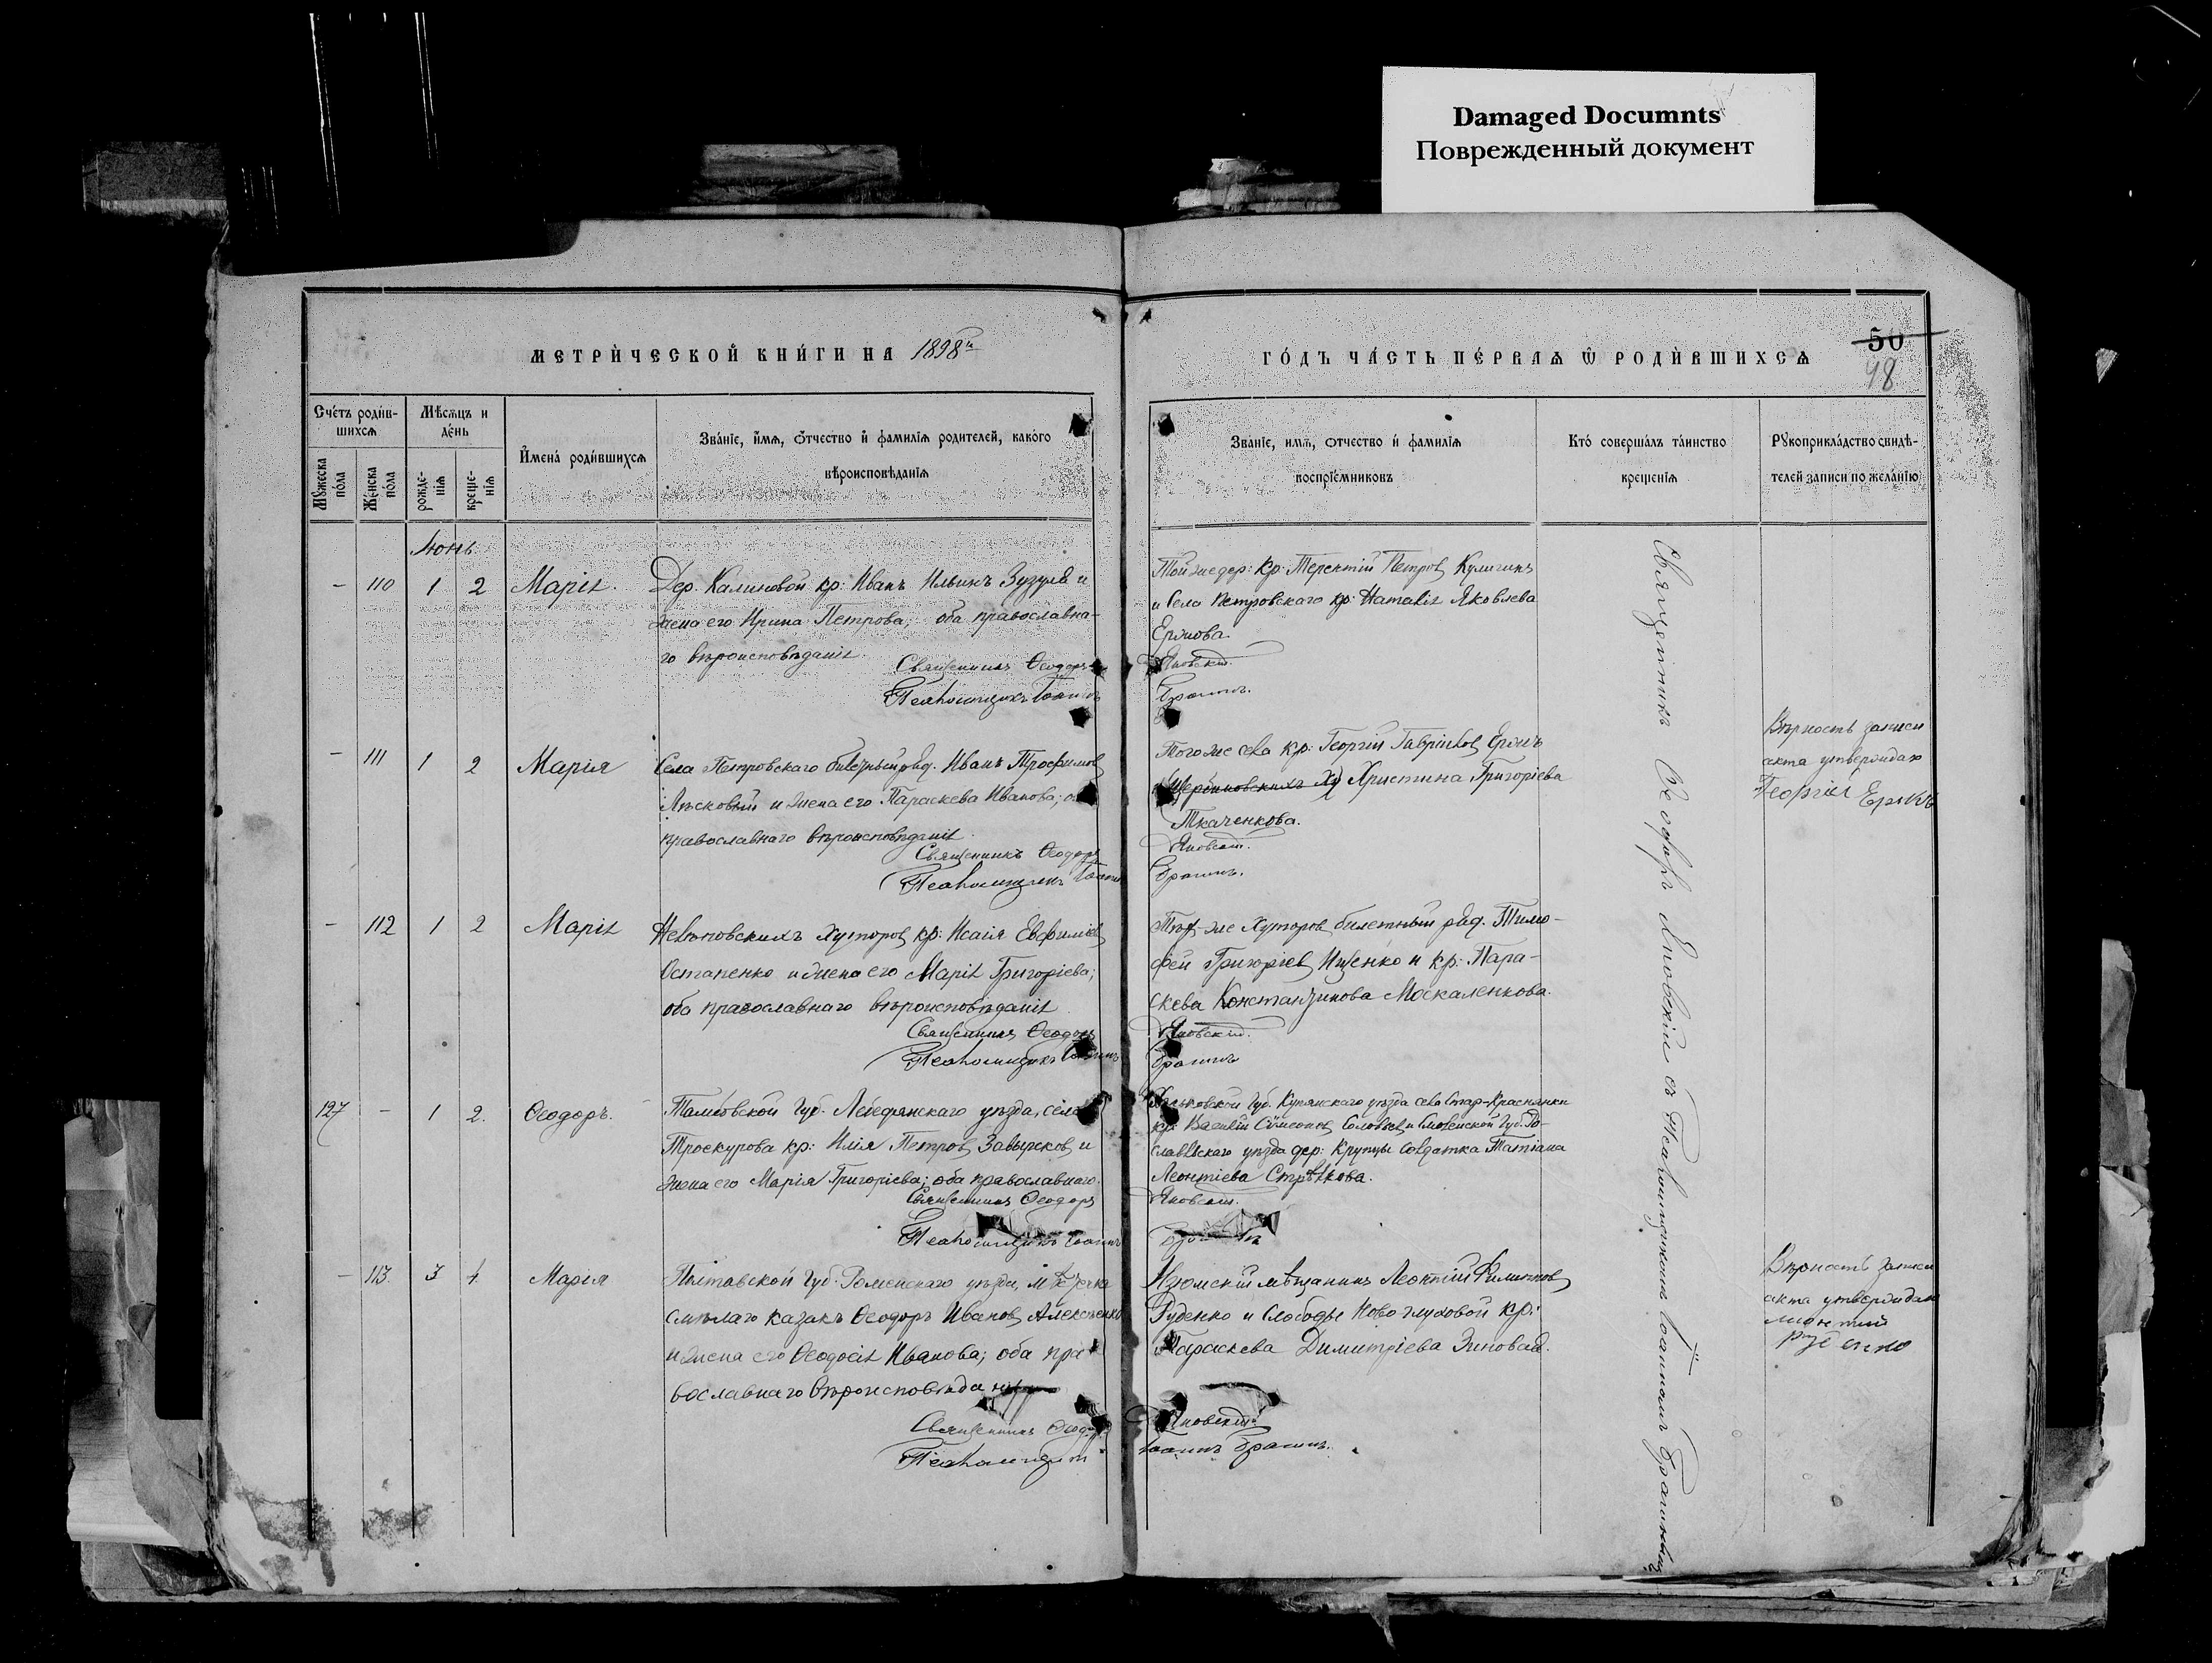 Damaged Documnts
Поврежденный документ
МЕТРИЧЕСКОЙ КНИГИ НА 1898й
ГОДЪ ЧАСТЬ ПЕРВАЯ Ѡ РОДИВШИХСЯ
50
48
Счетъ родив-
шихся
Мѣсяцъ и
день
Мужеска
пола
Женска
пола
рожде-
нія
креще-
нія
Имена родившихся
Званіе, имя, отчество и фамилія родителей, какого
вѣроисповѣданія
Званіе, имя, отчество и фамилія
воспріемниковъ
Кто совершалъ таинство
крещенія
Рукоприкладство свидѣ-
телей записи по желанію
Іюнь
- 110 1 2 Марія.
Дер. Калиновой кр: Иванъ Ильинъ Зузуля и
жена его Ирина Петрова; оба православна-
го вѣроисповѣданія.
Священникъ Ѳеодоръ
Псаломщикъ Іоаннъ
Той же дер: кр: Терентій Петровъ Куличинъ
и села Петровскаго кр: Наталія Яковлева
Ерюкова.
Яновскій.
- 111 1 2 Марія
Села Петровскаго билетный ряд. Иванъ Трофимовъ
Лѣсковый и жена его Параскева Иванова;
православнаго вѣроисповѣданія.
Священникъ Ѳеодоръ
Псаломщикъ Іоаннъ
Того же села кр: Георгій Гавріиловъ
Христина Григоріева
Ткаченкова.
Яновскій.
Вѣрность записи
акта утверждаю
Георгій
- 112 1 2 Марія
Хуторовъ кр: Исаія Евфиміевъ
Остапенко и жена его Марія Григоріева;
оба православнаго вѣроисповѣданія
Священникъ Ѳеодоръ
Псаломщикъ Іоаннъ
Тѣхъ-же Хуторовъ билетный ряд. Тимо-
фей Григоріевъ Ищенко и кр: Пара-
скева Константинова Москаленкова.
Яновскій.
127 - 1 2. Ѳеодоръ.
Тамбовской губ. Лебедянскаго уѣзда, села
Троекурова кр: Илія Петровъ и
жена его Марія Григоріева; оба православнаго.
Священникъ Ѳеодоръ
Псаломщикъ Іоаннъ
Харьковской губ. Купянскаго уѣзда села Стар-Краснянки
кр: Василій Симеоновъ Соловьевъ и Смоленской Губ. Ро-
славльскаго уѣзда дер: Крупцы солдатка Татіана
Леонтіева Стрѣлкова.
Яновскій.
- 113. 3 4. Марія
Полтавской Губ. Роменскаго уѣзда, мѣстечка
Смѣлаго казакъ Ѳеодоръ Ивановъ Алексѣенко
и жена его Ѳеодосія Иванова; оба пра-
вославнаго вѣроисповѣданія
Священникъ Ѳеодоръ
Псаломщикъ
Изюмскій мѣщанинъ Леонтій Филипповъ
Руденко и Слободы Новоглуховой кр:
Параскева Димитріева
Яновскій
Іоаннъ
Вѣрность записи
акта утверждаю
Леонтій
Руденко
Священникъ Ѳеодоръ Яновскій съ Псаломщикомъ Іоанномъ